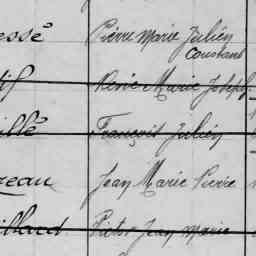 essé Pierre Marie Julien
Constant
tif René Marie Joseph
illé François Julien
zeau Jean Marie Pierre
illard Jean Marie